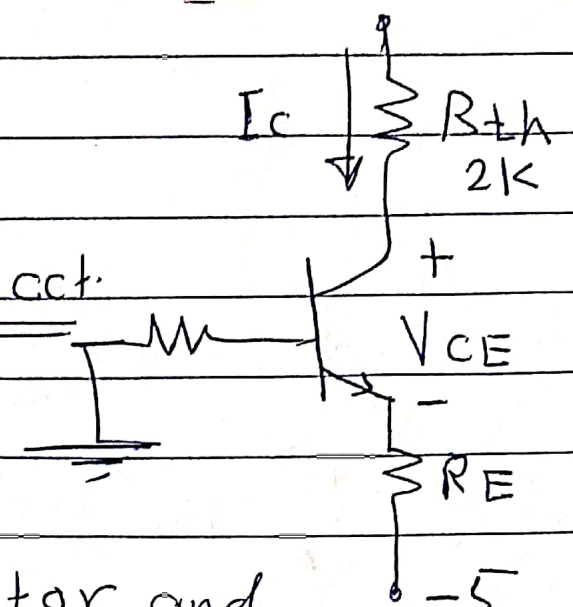 Ic
Rth
2K
+
cct.
VCE
-
RE
-5
tor and